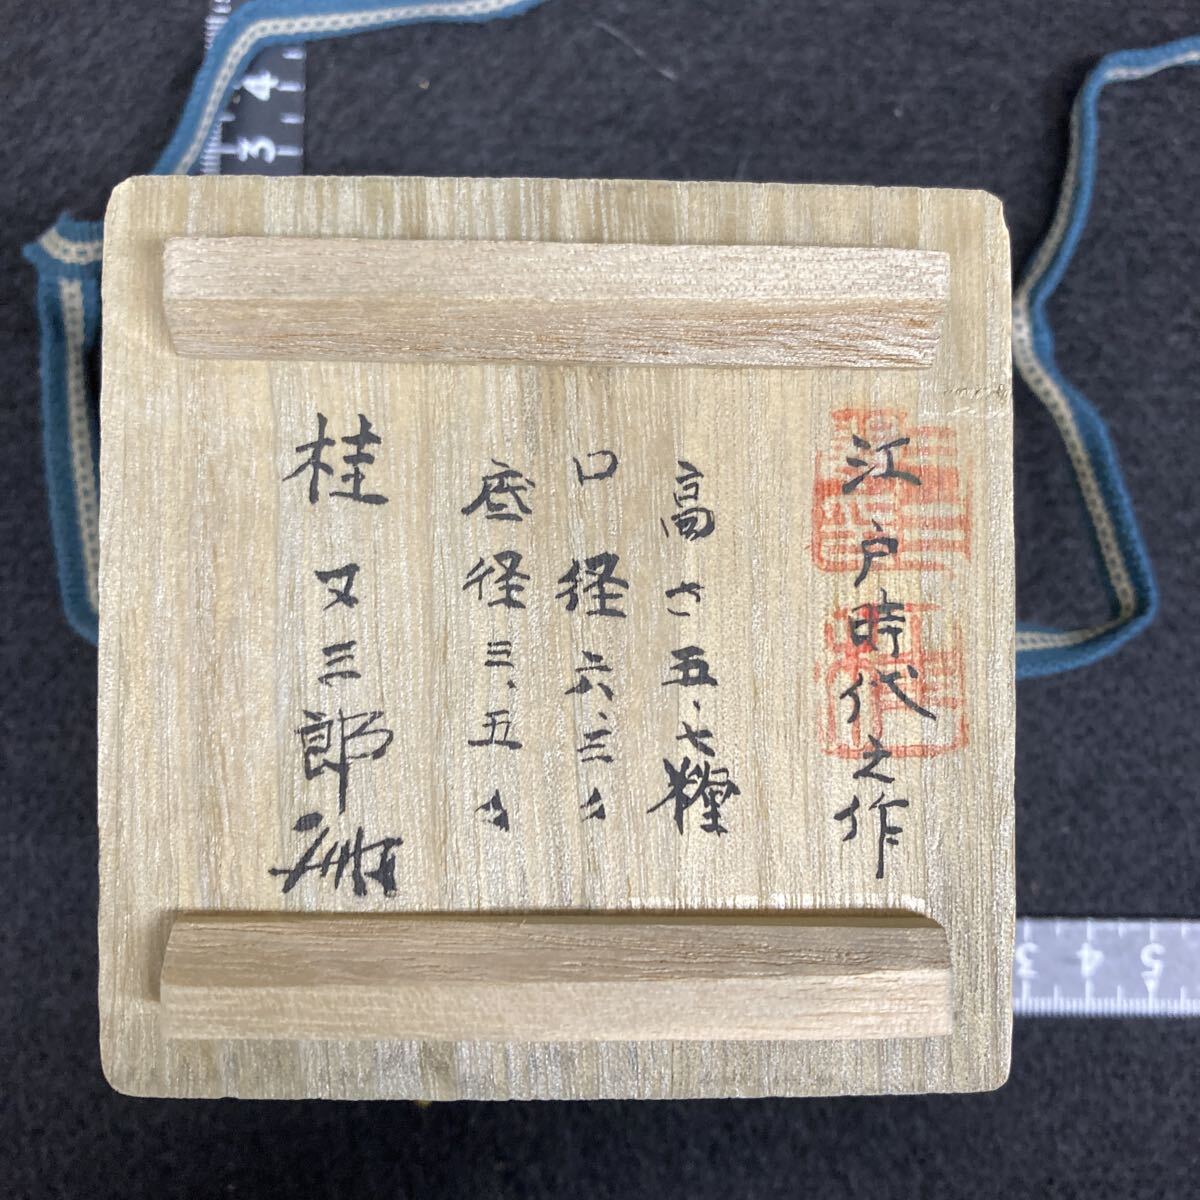 江戸時代之作
高さ五.七糎
口径六.三〃
底径三.五〃
桂又三郎
4
3
3 4 5